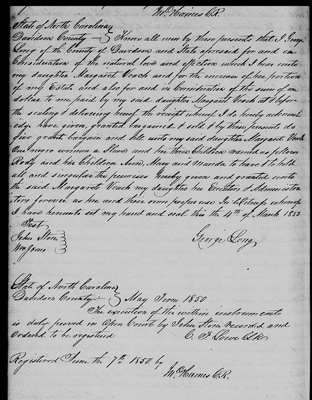 Wm. Haines C.R.
State of North Carolina
Davidson County } Know all men by these presents that I George
Long of the County of Davidson and State aforesaid for and in
Consideration of the natural love and affection which I have unto
my daughter Margaret Veach and for the increase of her portion
of my Estate and also for and in Consideration of the sum of one
dollar to me paid by my said daughter Margaret Veach at & before
the sealing & delivering hereof the receipt whereof I do hereby acknowl-
edge have given, granted bargained & sold & by these presents do
give grant bargain and sell unto my said daughter Margaret Veach
One negro woman a slave and her three Children named as follows
Rody and her Children Ann, Mary and Manda to have & to hold
all and singular the premises hereby given and granted unto
the said Margaret Veach my daughter her Executors & Administra
tors forever as her and their own proper use In Witness whereof
I have hereunto set my hand and seal this the 4th of March 1850
Test
John Stone
Wm Jones
George Long
State of North Carolina
Davidson County } May Term 1850
The execution of the within instrument
is duly proved in Open Court by John Stone recorded and
Ordered to be registered C. F. Lowe Clk
Registered June the 7th 1850 by
Wm. Haines C.R.